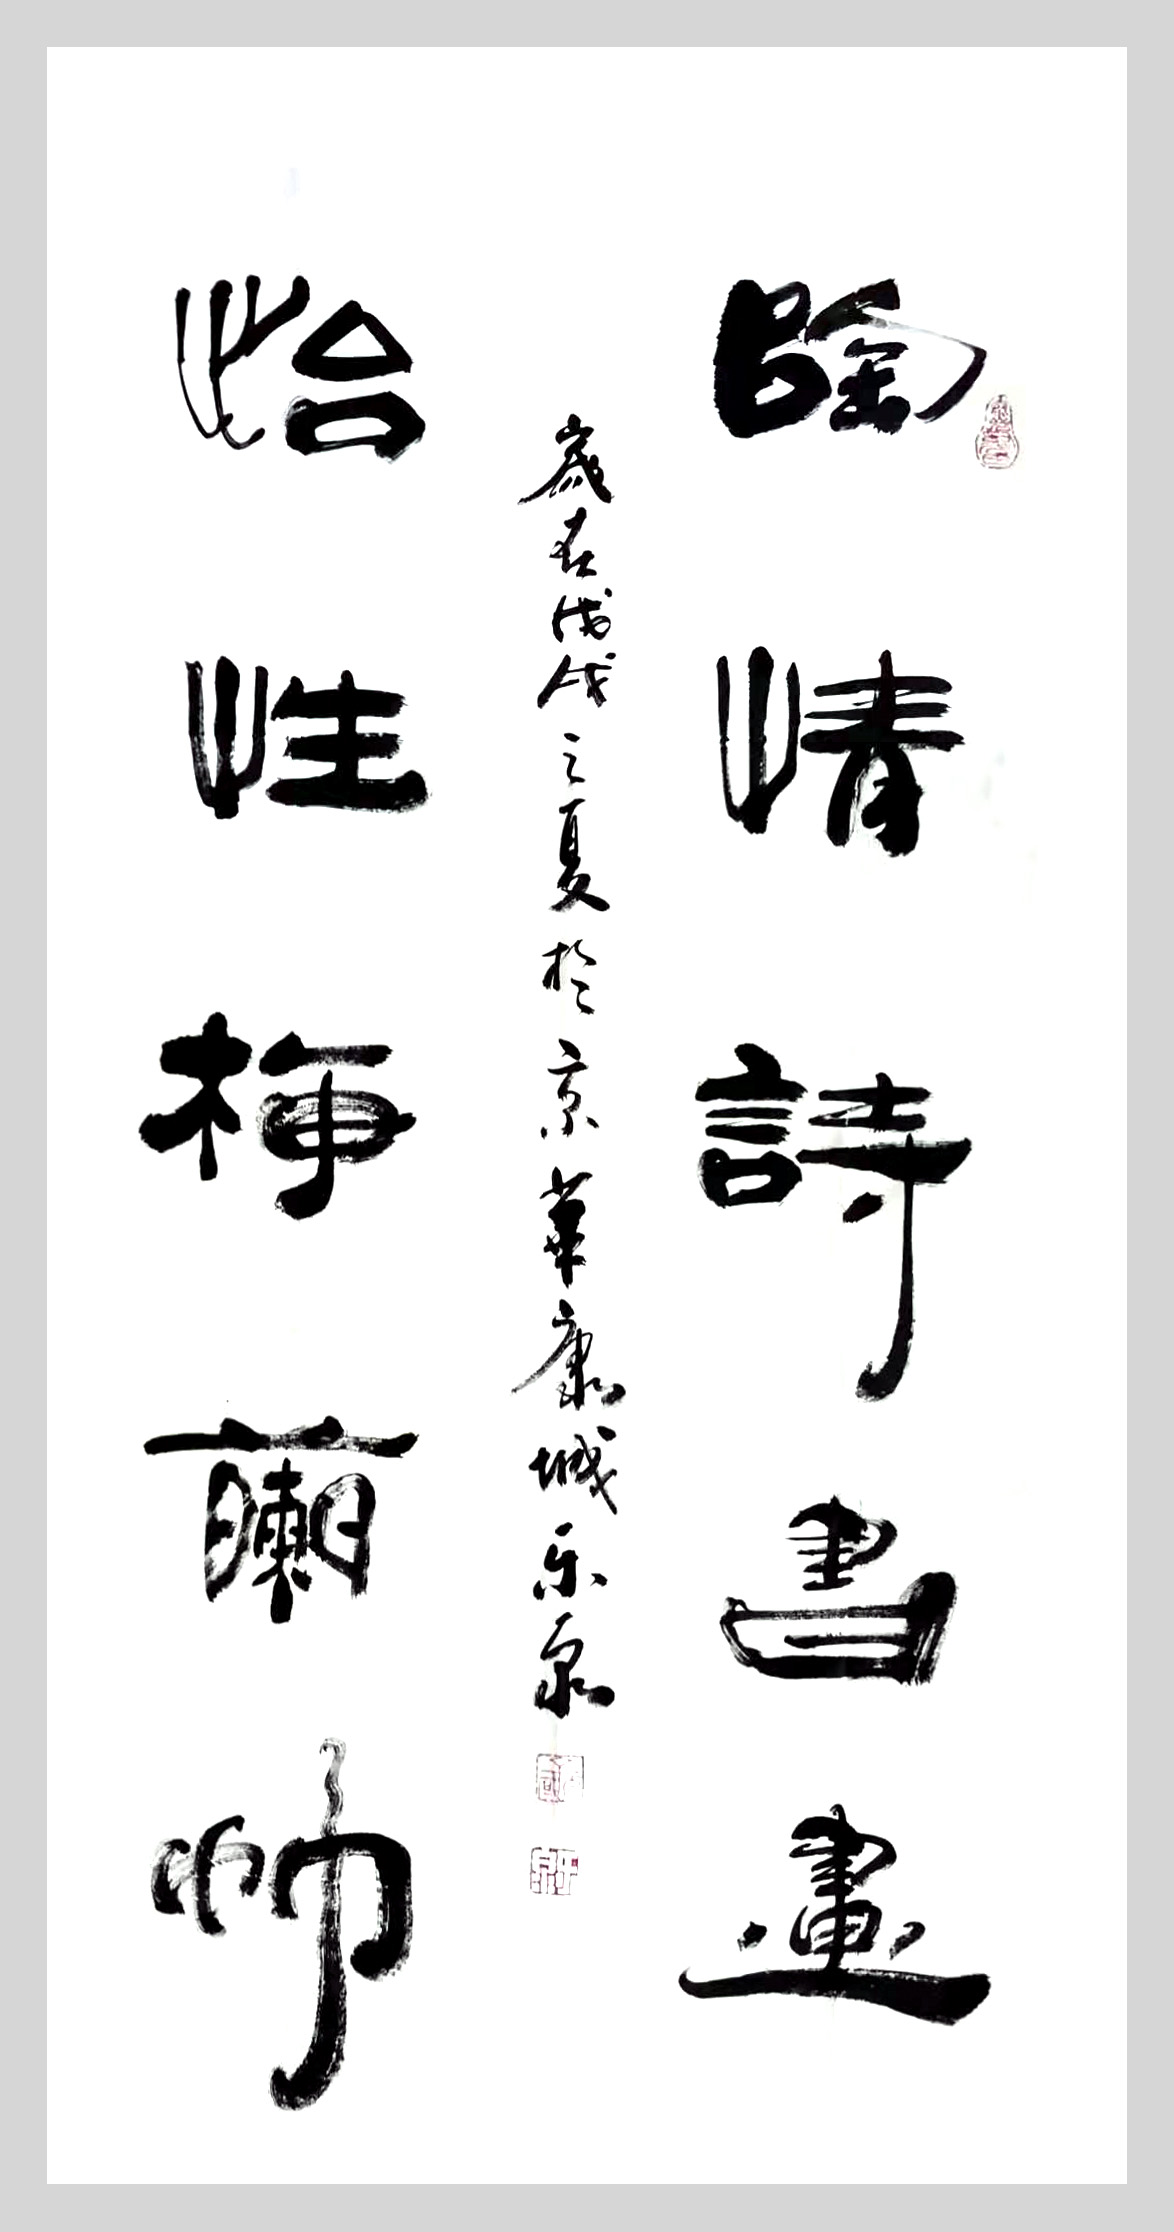 陶情詩書畫
歲在戊戌之夏於京華康城乐泉
怡性梅蘭師